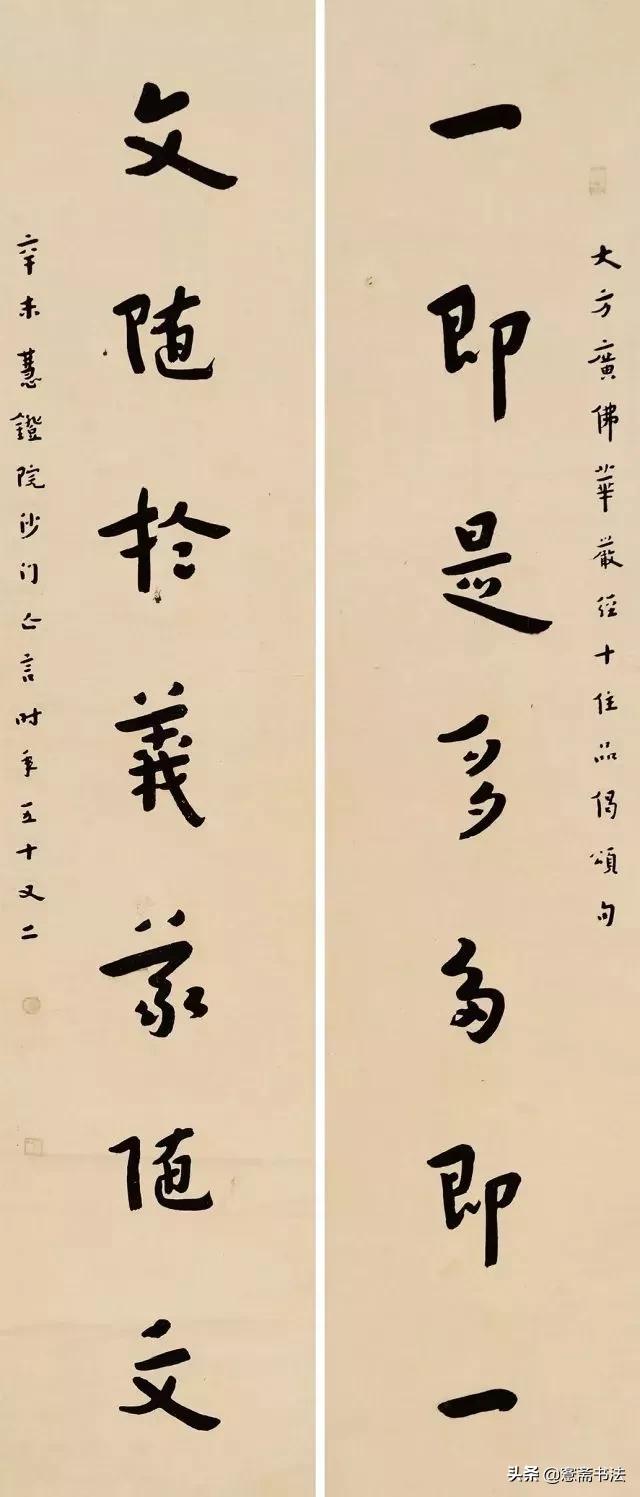 大方廣佛華嚴經十住品偈頌句
一即是多多即一
文随於義義随文
辛未慧鐙院沙门亡言时年五十又二
头条 @愙斋书法